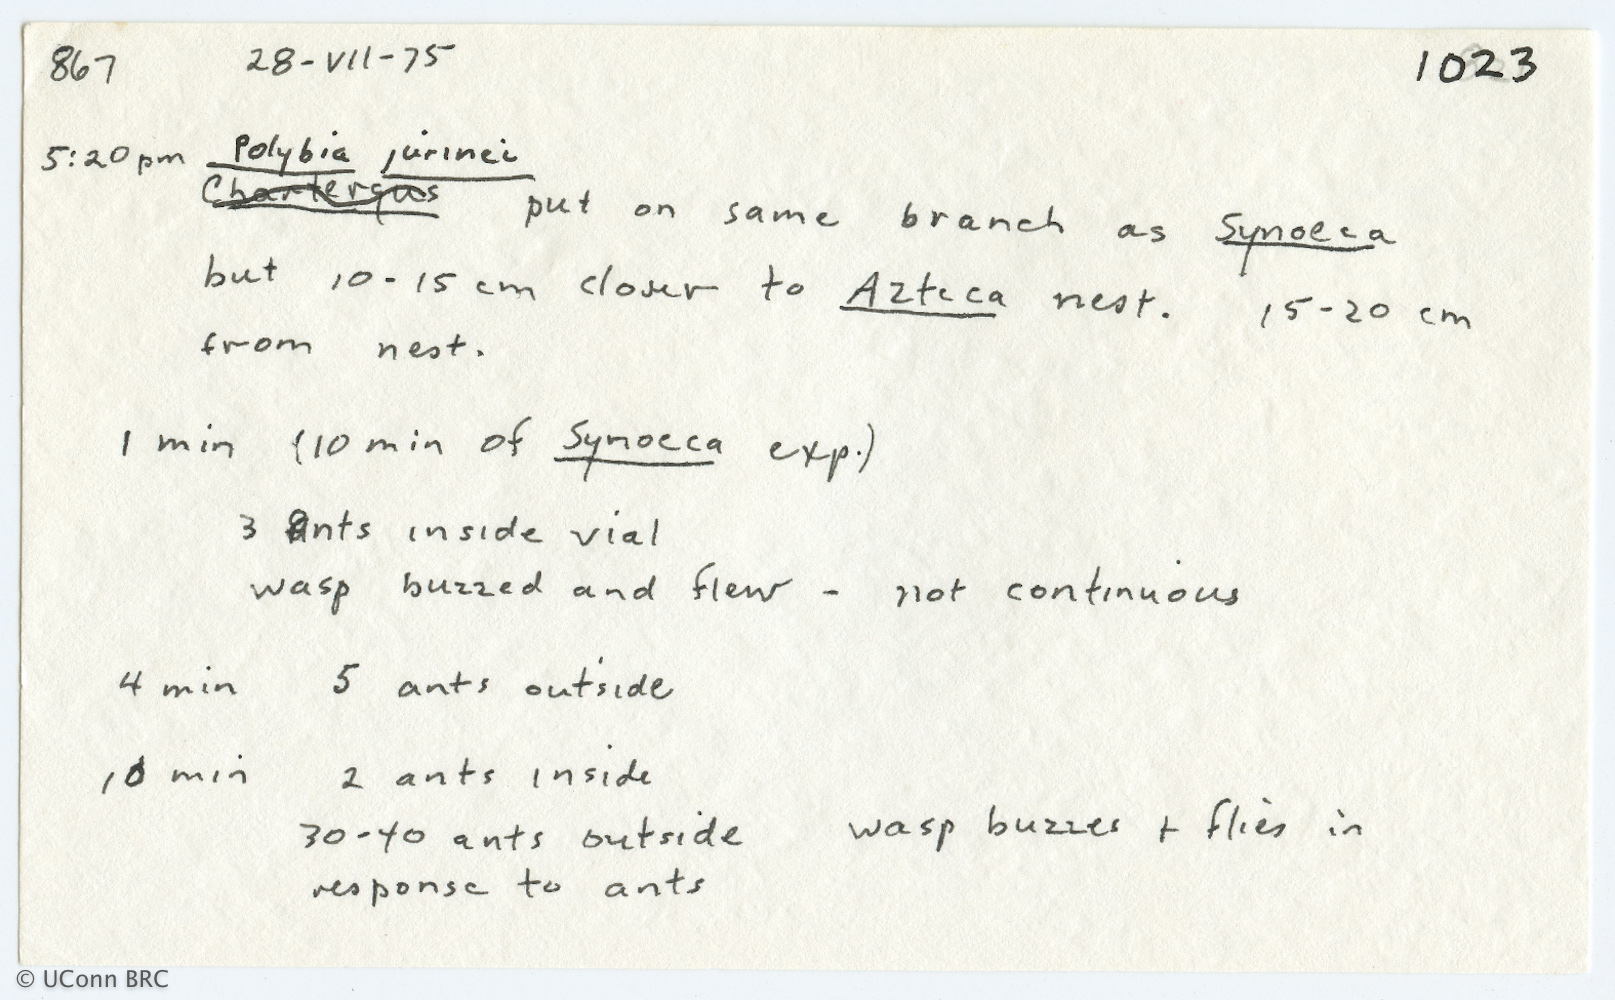 867 28-VII-75 1023
5:20pm Polybia jurinei
Chartergus put on same branch as Synoeca
but 10-15 cm closer to Azteca nest. 15-20 cm
from nest.
1 min (10 min of Synoeca exp.)
3 ants inside vial
wasp buzzed and flew - not continuous
4 min 5 ants outside
10 min 2 ants inside
30-40 ants outside wasp buzzes + flies in
response to ants
© UConn BRC